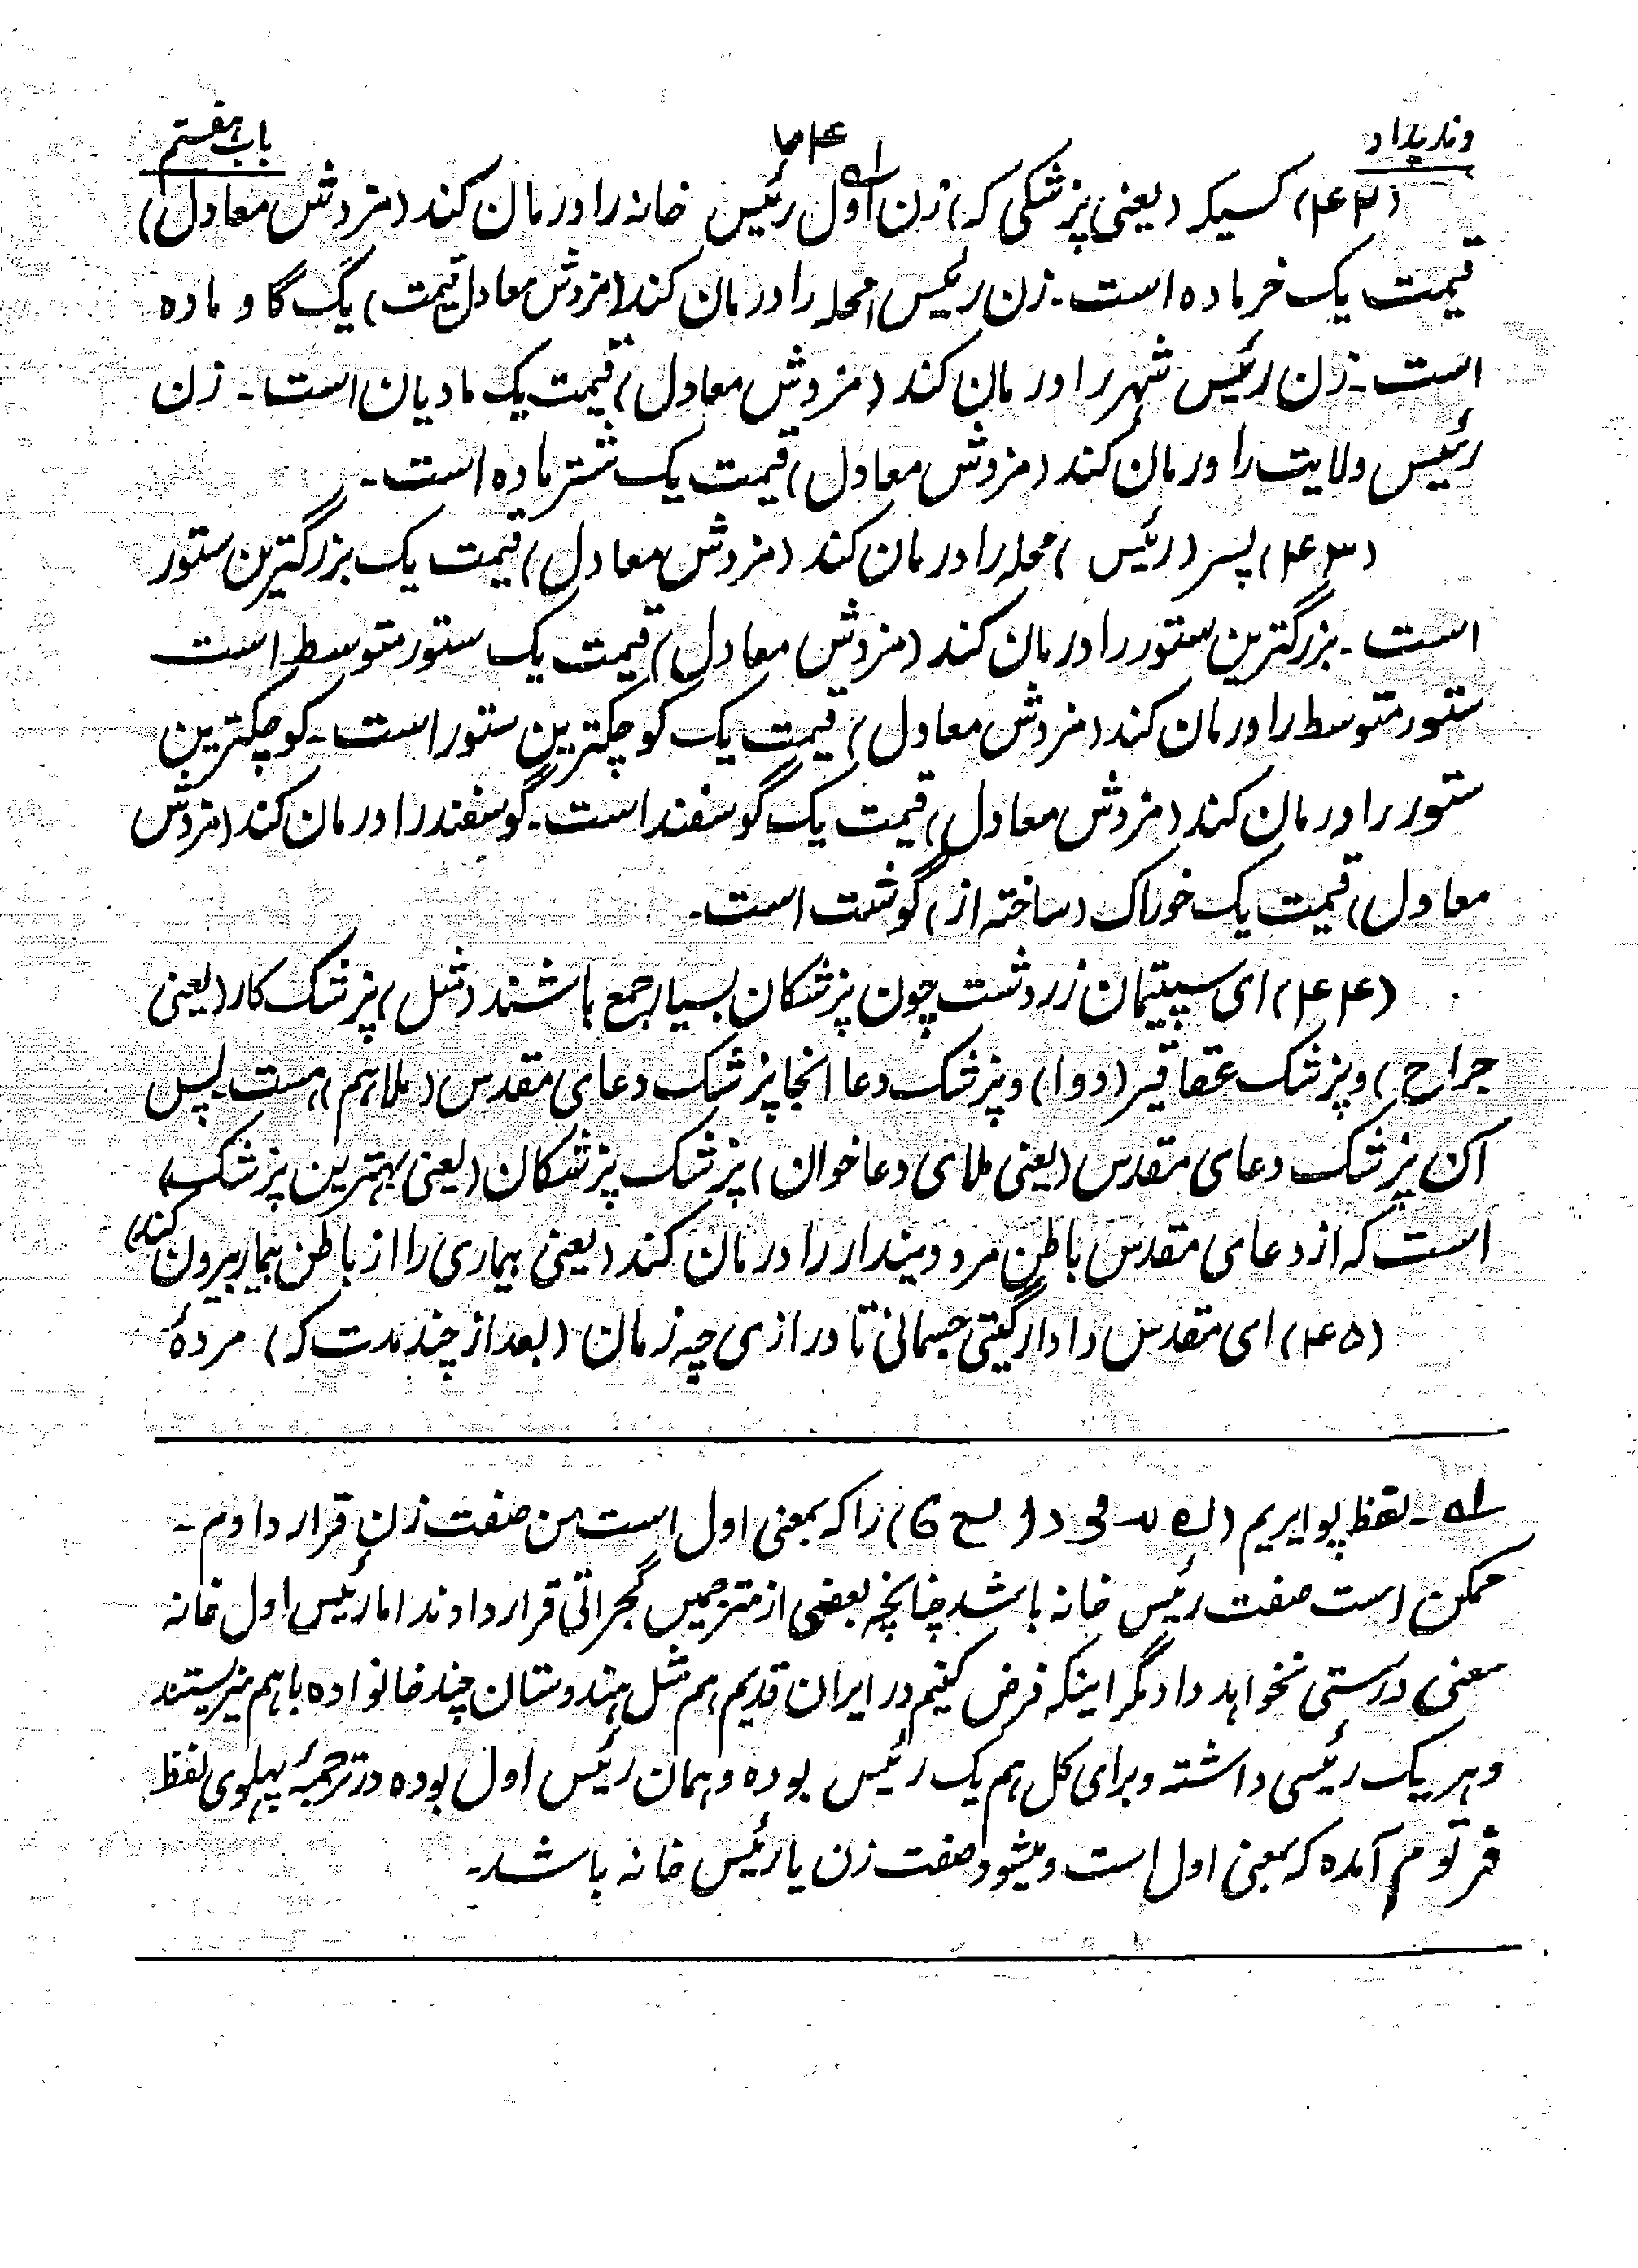 وندیداد
باب هفتم
(۴۲) کسیکه (یعنی پزشکی که) زن اول رئیس خانه را درمان کند (مزدش معادل)
قیمت یک خر ماده است - زن رئیس محله را درمان کند (مزدش معادل قیمت) یک گاو ماده
است - زن رئیس شهر را درمان کند (مزدش معادل) قیمت یک مادیان است - زن
رئیس ولایت را درمان کند (مزدش معادل) قیمت یک شتر ماده است -
(۴۳) پسر (رئیس) محله را درمان کند (مزدش معادل) قیمت یک بزرگترین ستور
است - بزرگترین ستور را درمان کند (مزدش معادل) قیمت یک ستور متوسط است
ستور متوسط را درمان کند (مزدش معادل) قیمت یک کوچکترین ستور است - کوچکترین
ستور را درمان کند (مزدش معادل) قیمت یک گوسفند است - گوسفند را درمان کند (مزدش
معادل) قیمت یک خوراک (ساخته از) گوشت است -
(۴۴) ای سپیتمان زردشت چون پزشکان بسیار جمع باشند (مثل) پزشک کار (یعنی
جراح) و پزشک عقاقیر (دوا) و پزشک دعا انجا پزشک دعای مقدس (ملا هم) هست پس
آن پزشک دعای مقدس (یعنی ملای دعا خوان) پزشک پزشکان (یعنی بهترین پزشک)
است که از دعای مقدس باطن مرد دیندار را درمان کند (یعنی بیماری را از باطن بیمار بیرون کند)
(۴۵) ای مقدس دادار گیتی جسمانی تا درازی چه زمان (بعد از چند مدت که) مردهٔ
۱ - لفظ پوایریم را که بمعنی اول است من صفت زن قرار دادم -
ممکن است صفت رئیس خانه باشد چنانچه بعضی از مترجمین گجراتی قرار دادند اما رئیس اول خانه
معنی درستی نخواهد داد مگر اینکه فرض کنیم در ایران قدیم هم مثل هندوستان چند خانواده با هم میزیستند
و هر یک رئیسی داشته و برای کل هم یک رئیس بوده و همان رئیس اول بوده در ترجمهٔ پهلوی لفظ
فرتوم آمده که بمعنی اول است و میشود صفت زن یا رئیس خانه باشد -